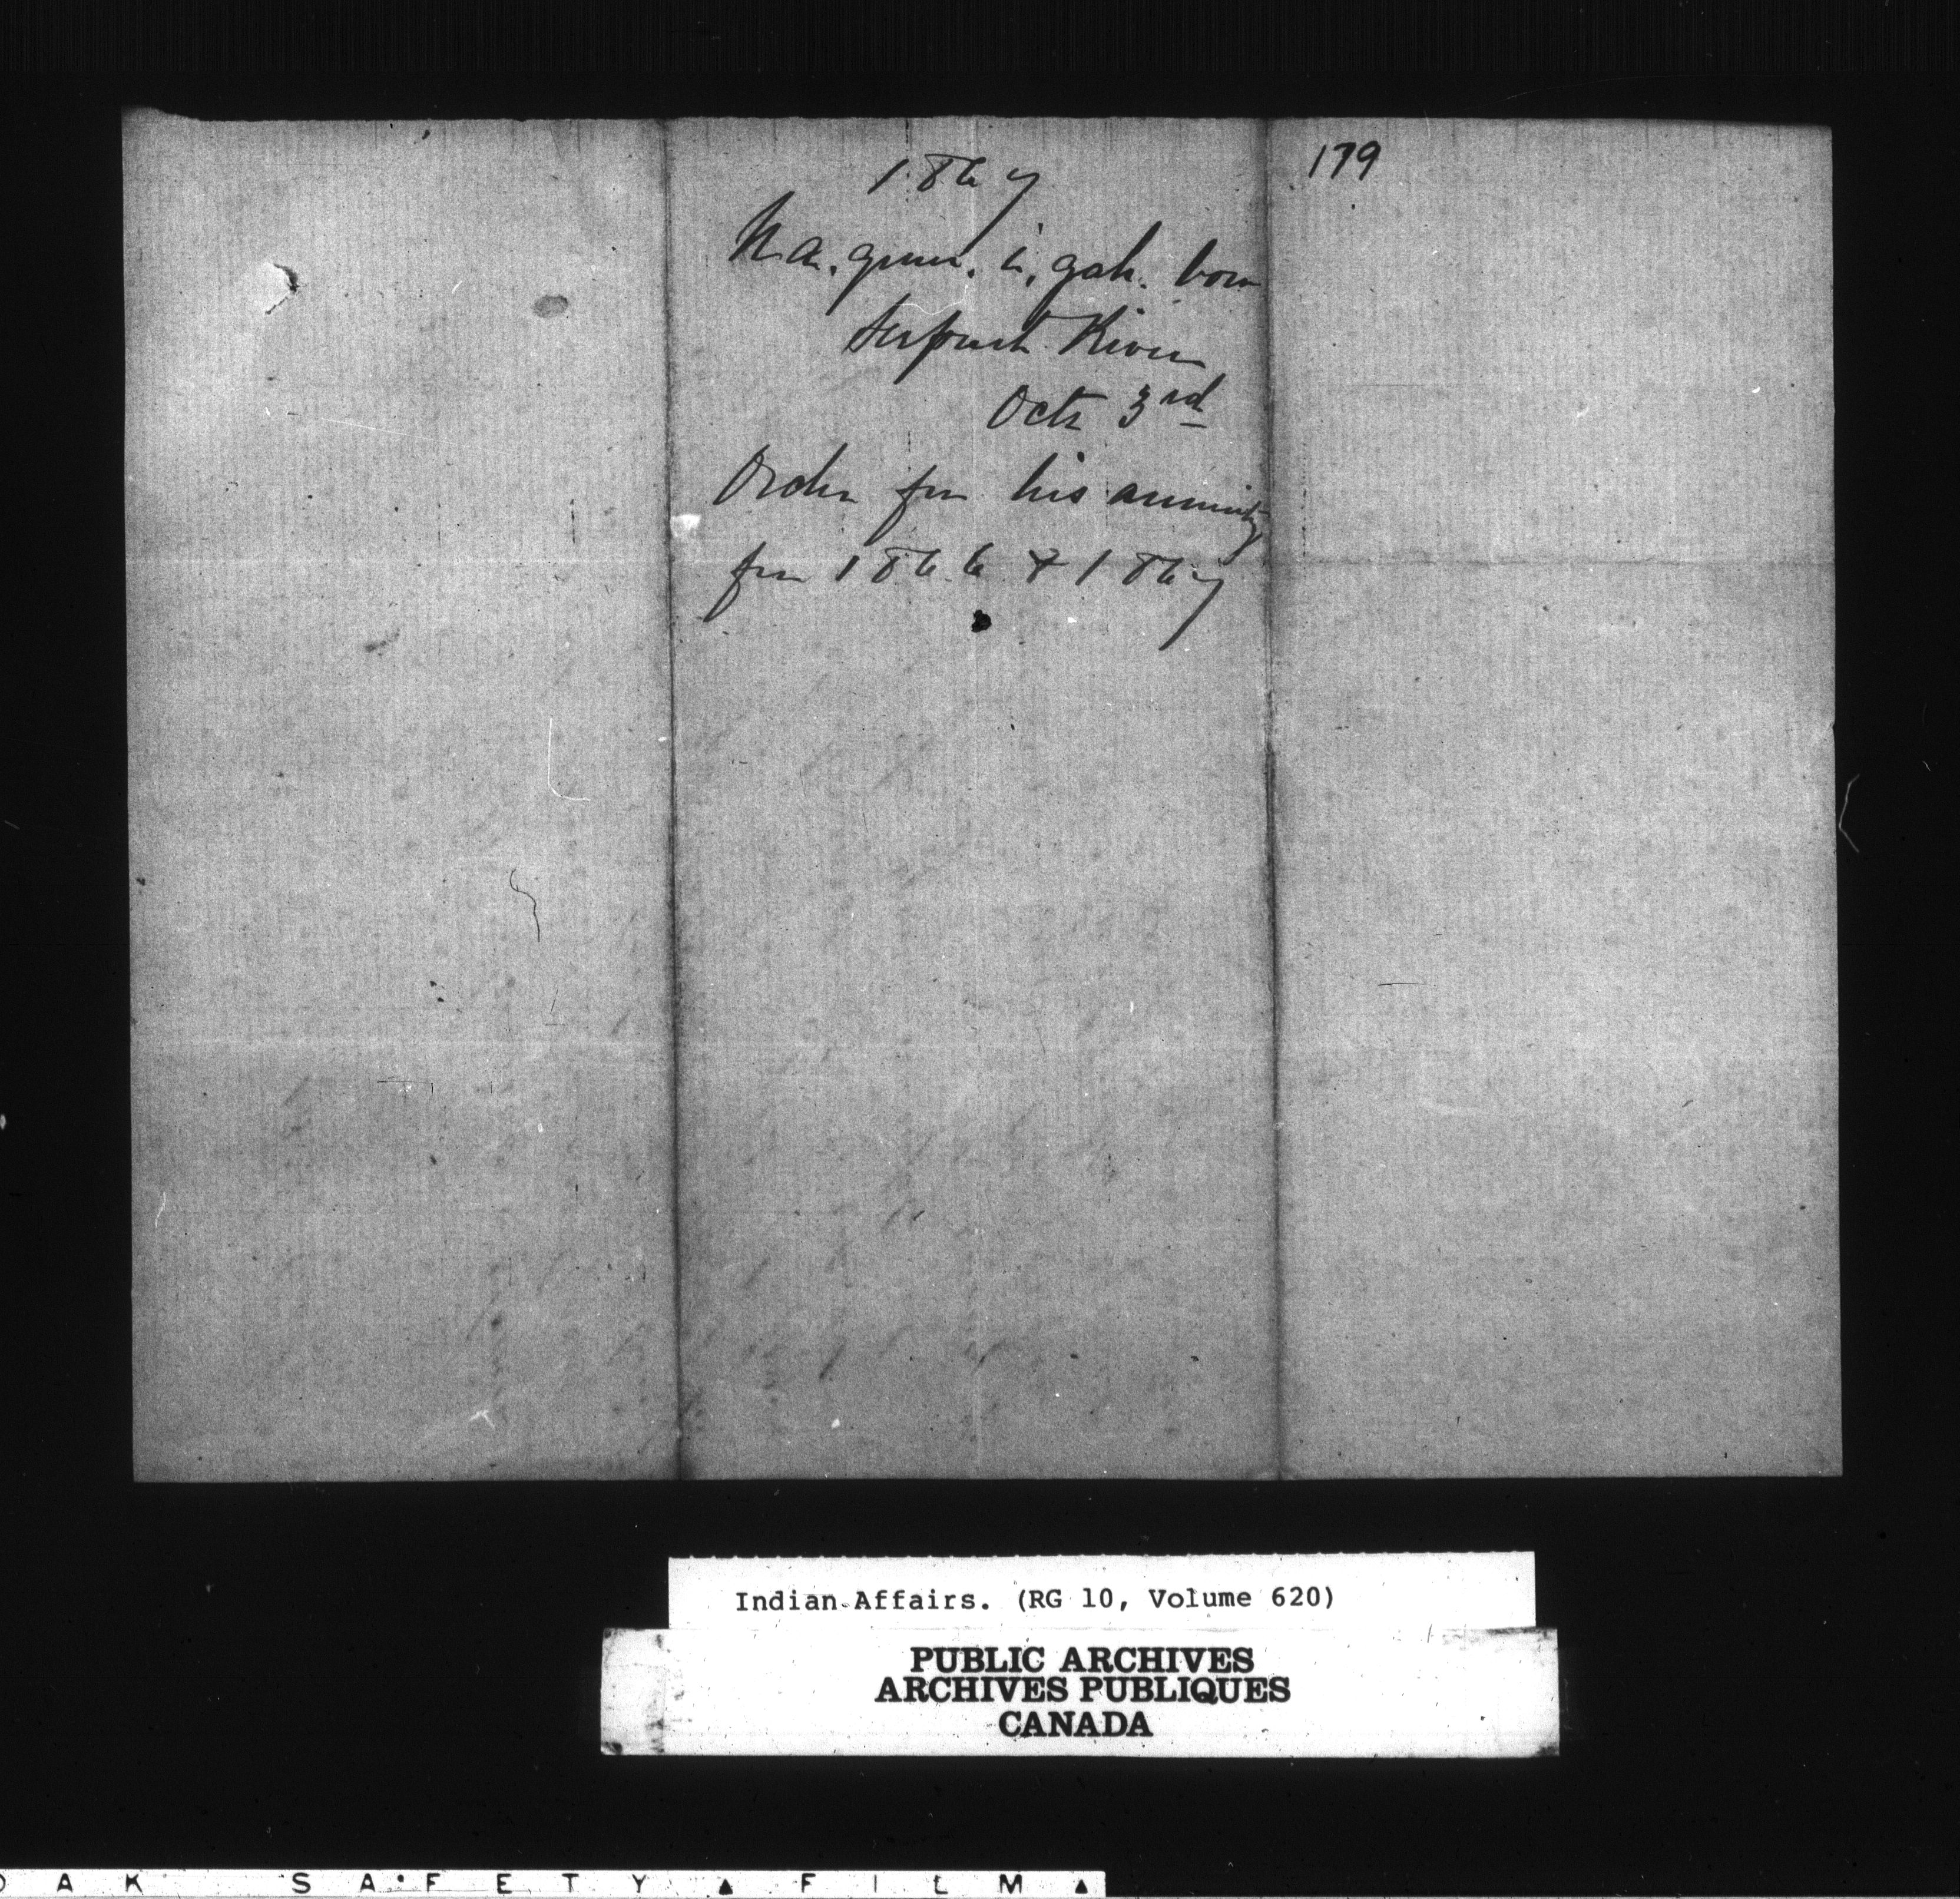 1867
Na. quin. i, gah. bow
Serpent River
Octr 3rd
Order for his annuity
for 1866 & 1867
179
Indian Affairs. (RG 10, Volume 620)
PUBLIC ARCHIVES
ARCHIVES PUBLIQUES
CANADA
AK SAFETY ▲ FILM ▲